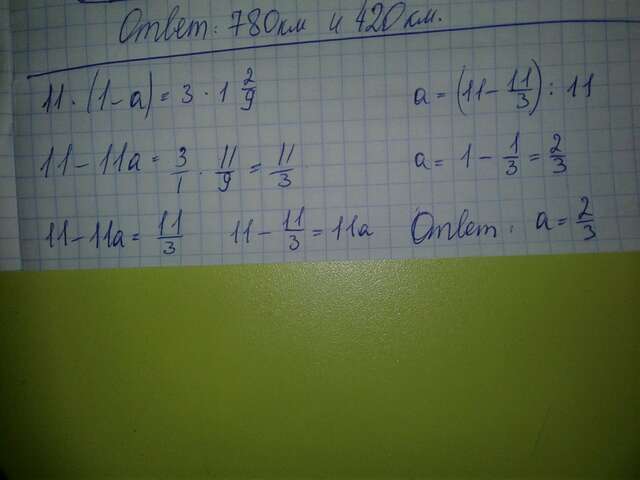 Ответ: 780км и 420км.
11 · (1-a) = 3 · 1 2/9
11 - 11a = 3/1 · 11/9 = 11/3
11 - 11a = 11/3 11 - 11/3 = 11a
a = (11 - 11/3) : 11
a = 1 - 1/3 = 2/3
Ответ: a = 2/3